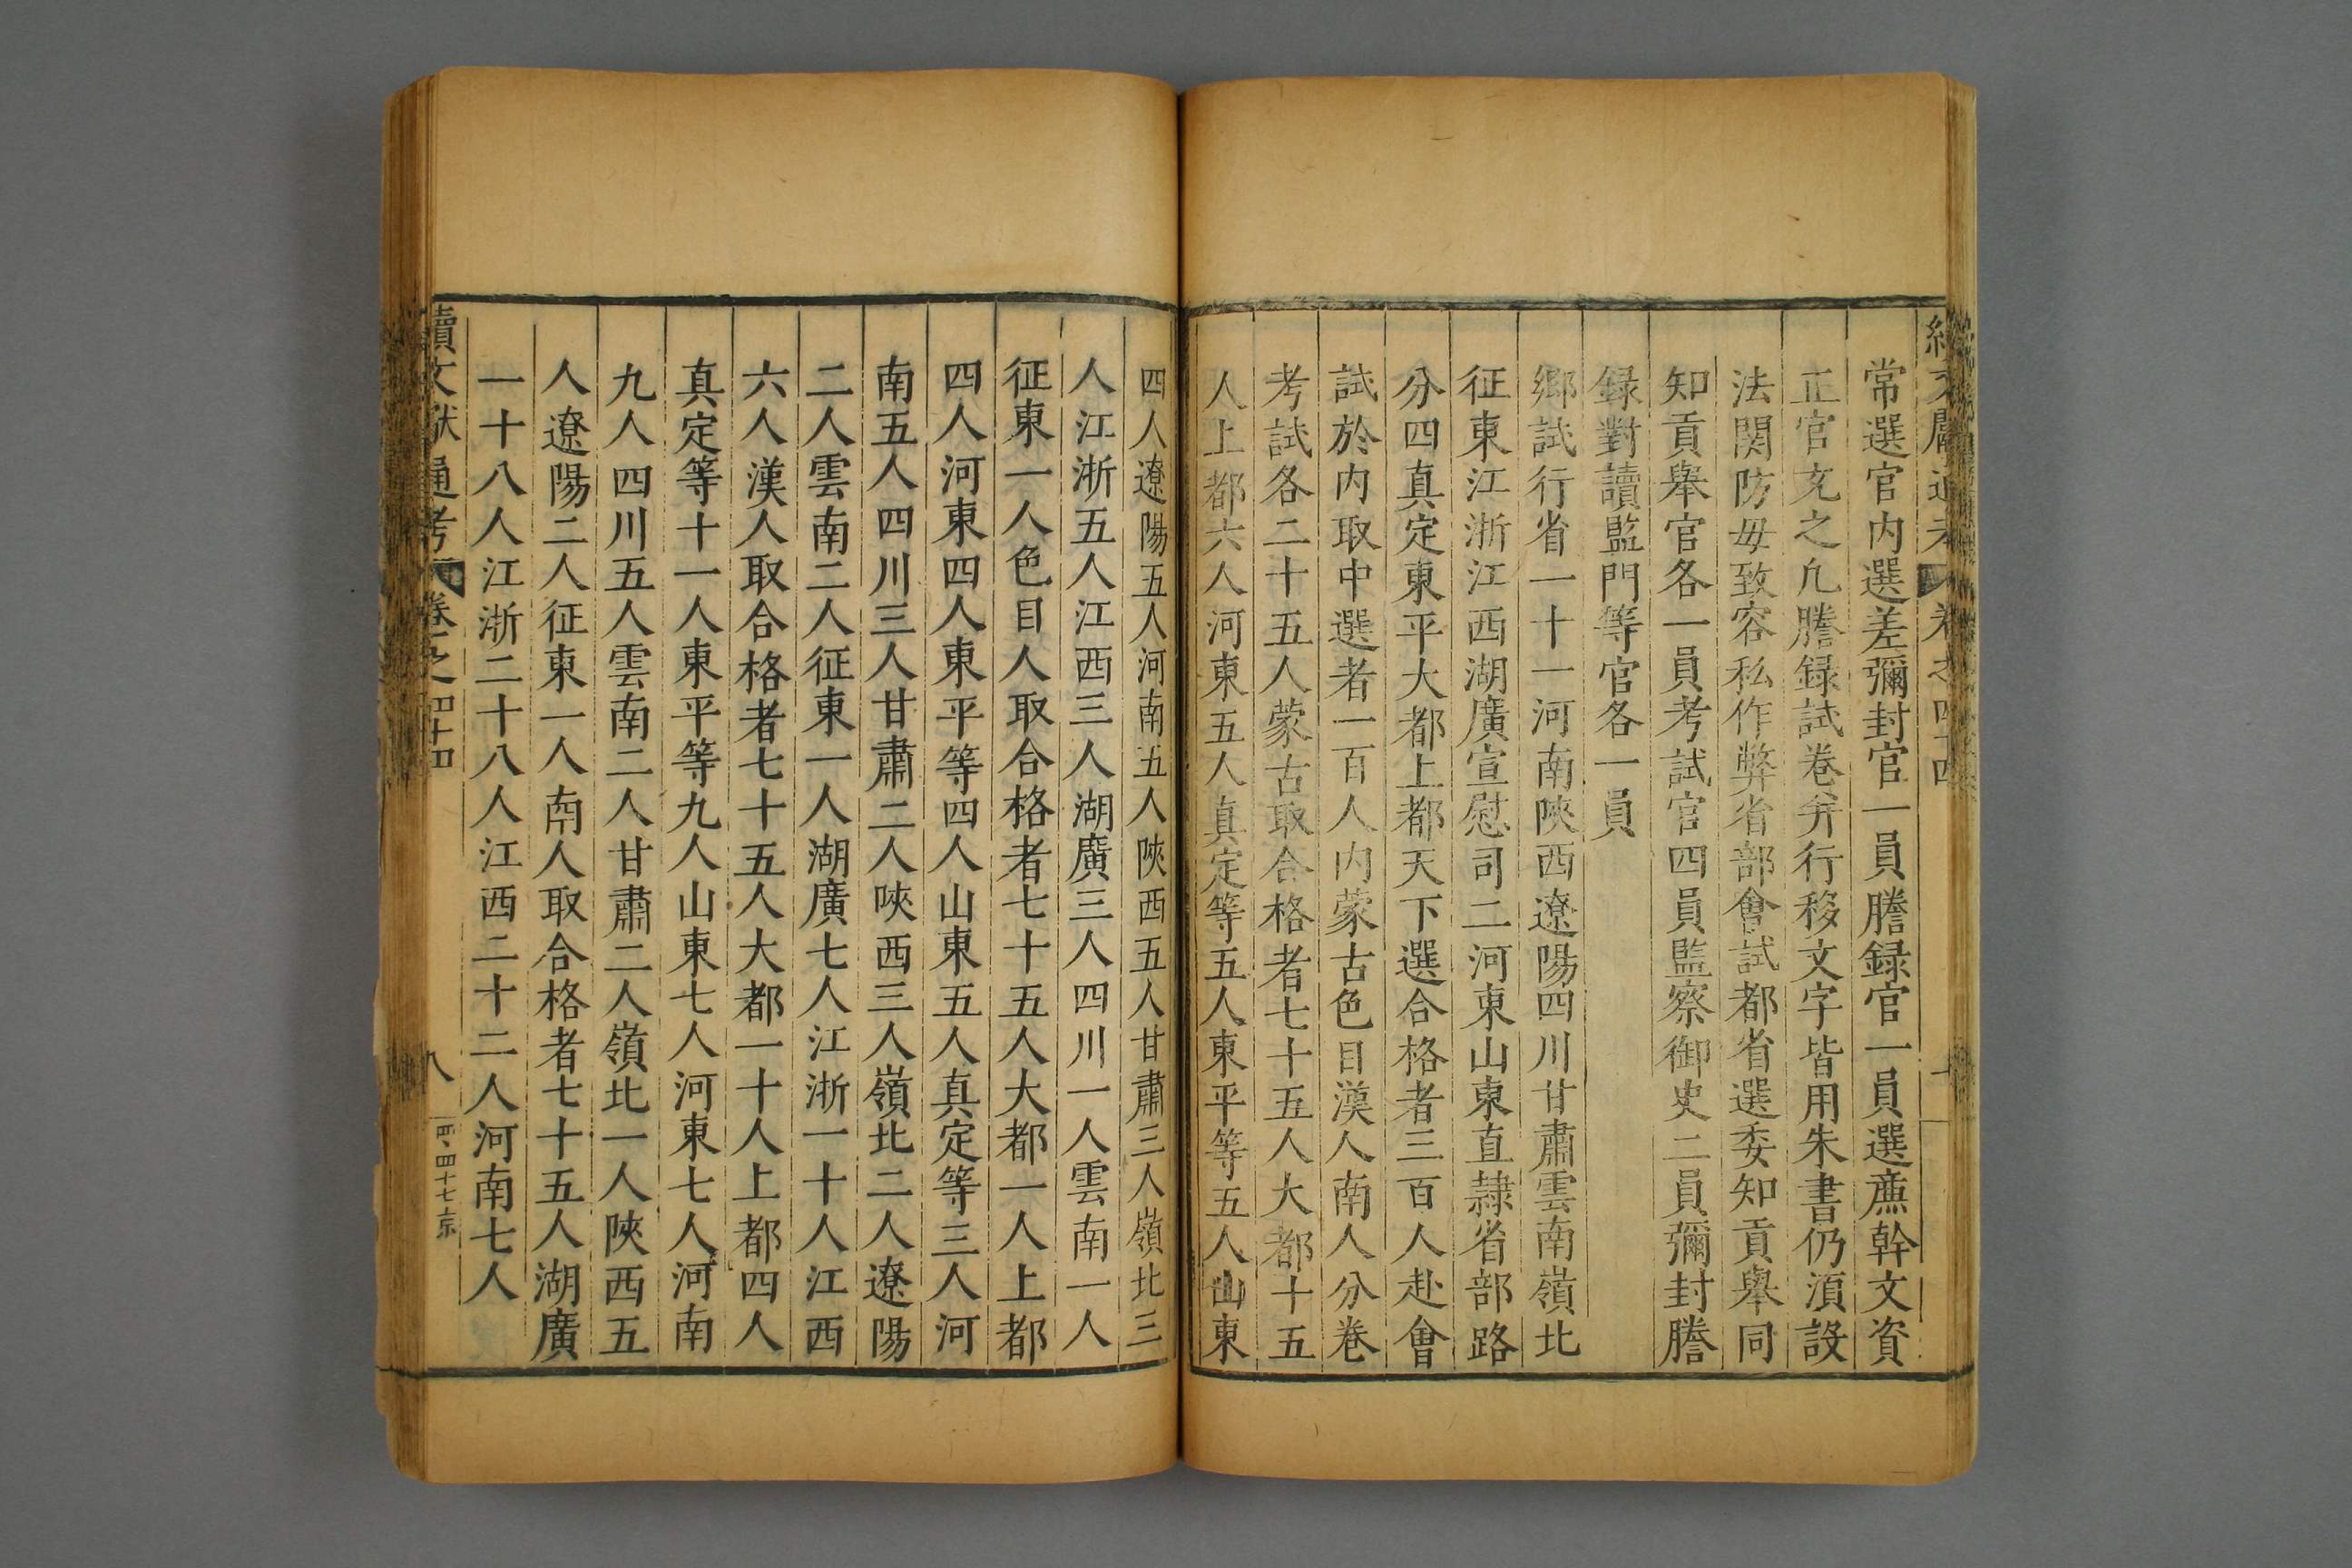 常選官内選差彌封官一員謄録官一員選廉幹文資
正官充之凡謄録試卷并行移文字皆用朱書仍湏設
法関防毋致容私作弊省部會試都省選委知貢舉同
知貢舉官各一員考試官四員監察御史二員彌封謄
録對讀監門等官各一員
鄉試行省一十一河南陝西遼陽四川甘肅雲南嶺北
征東江浙江西湖廣宣慰司二河東山東直隸省部路
分四真定東平大都上都天下選合格者三百人赴會
試於内取中選者一百人内蒙古色目漢人南人分卷
考試各二十五人蒙古取合格者七十五人大都十五
人上都六人河東五人真定等五人東平等五人山東
四人遼陽五人河南五人陝西五人甘肅三人嶺北三
人江浙五人江西三人湖廣三人四川一人雲南一人
征東一人色目人取合格者七十五人大都一人上都
四人河東四人東平等四人山東五人真定等三人河
南五人四川三人甘肅二人陝西三人嶺北二人遼陽
二人雲南二人征東一人湖廣七人江浙一十人江西
六人漢人取合格者七十五人大都一十人上都四人
真定等十一人東平等九人山東七人河東七人河南
九人四川五人雲南二人甘肅二人嶺北一人陝西五
人遼陽二人征東一人南人取合格者七十五人湖廣
一十八人江浙二十八人江西二十二人河南七人
續文獻通考 卷之四十四 八